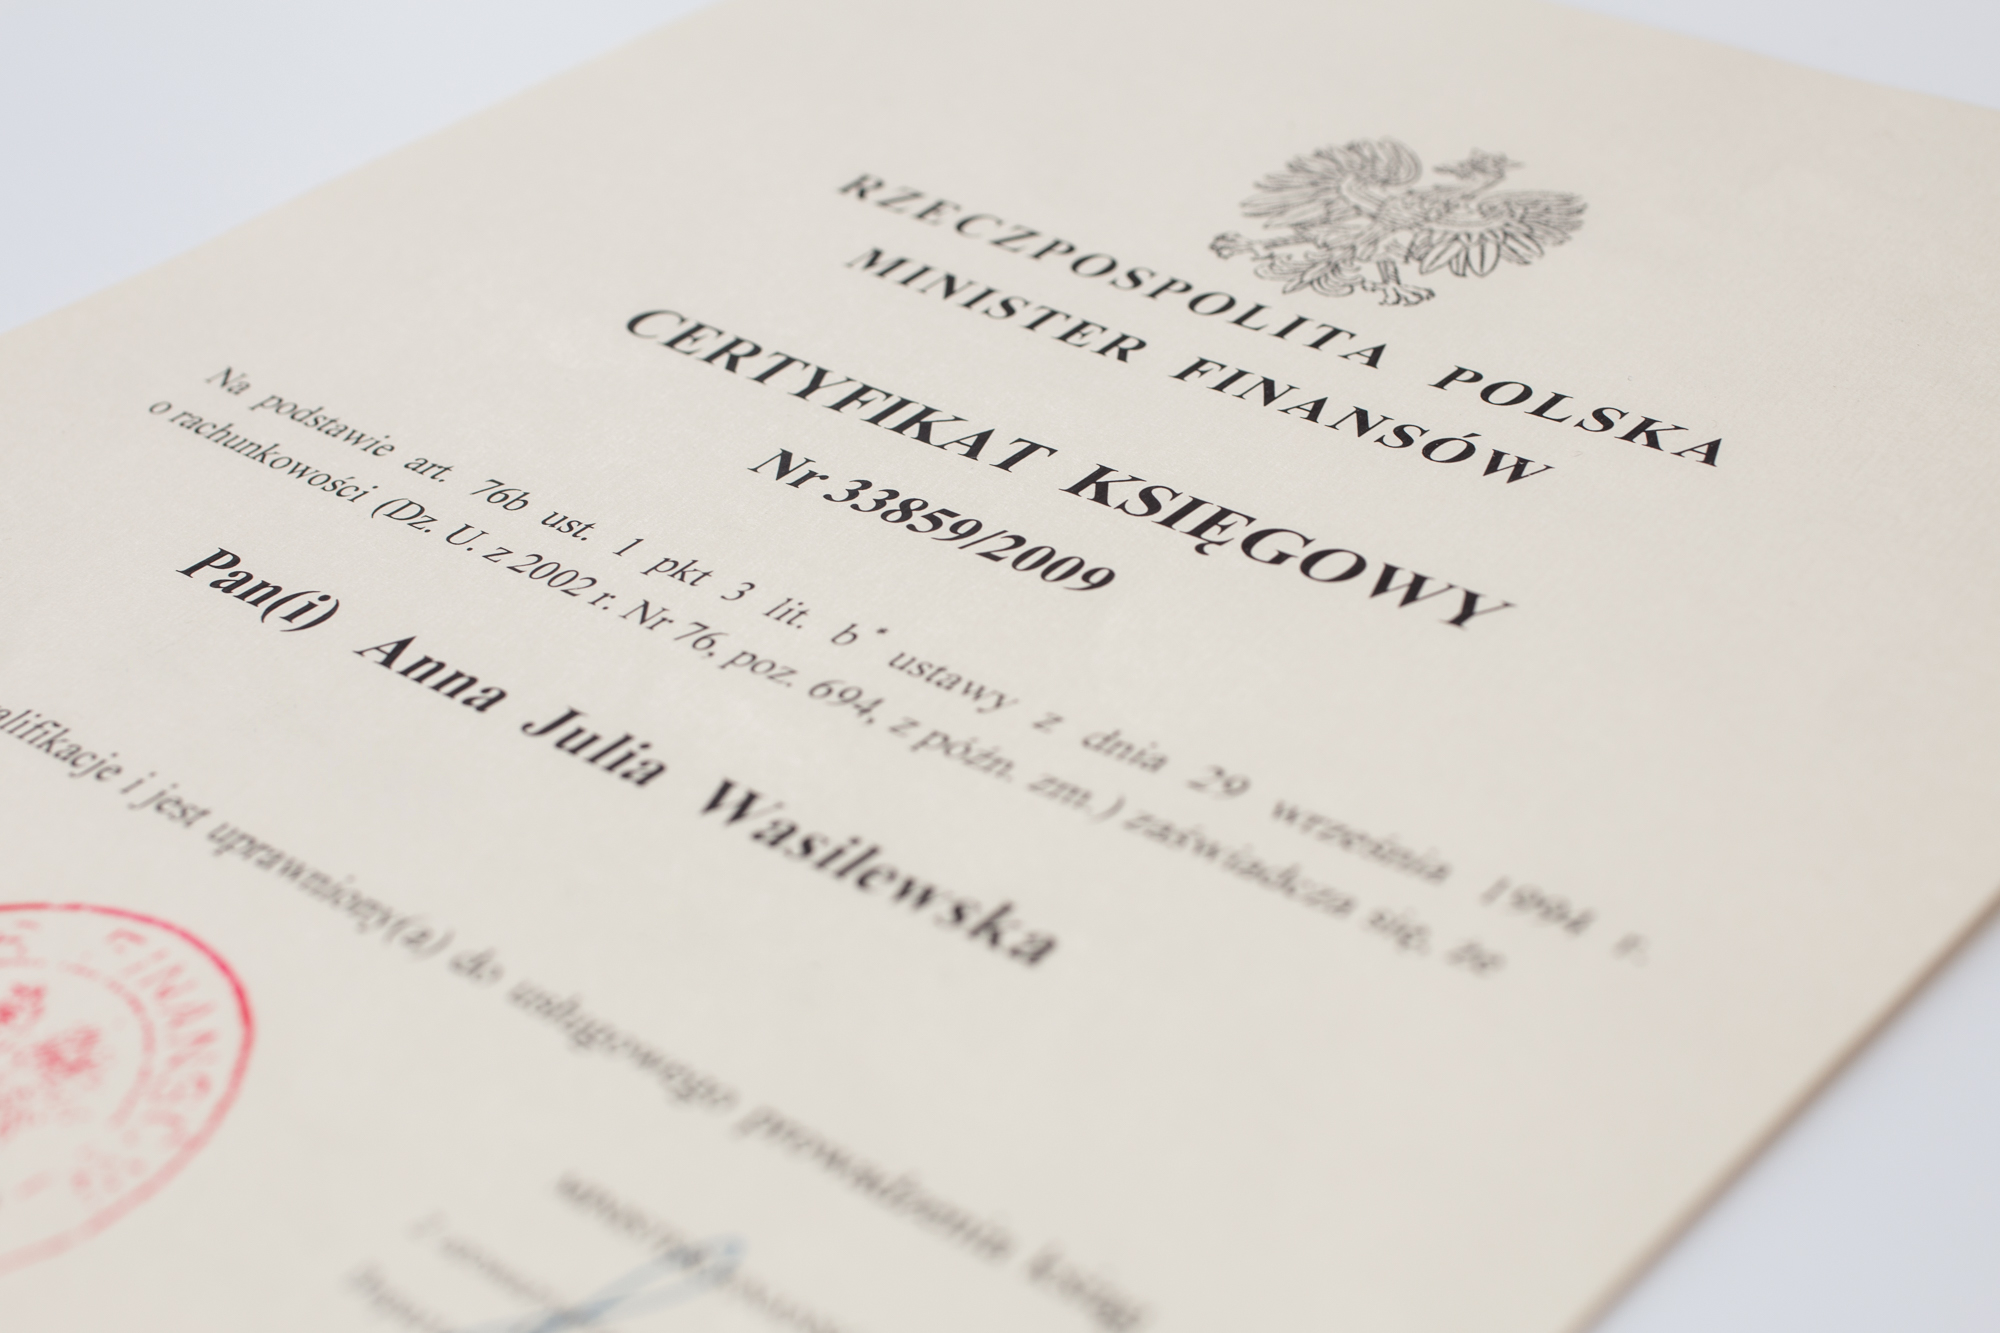 RZECZPOSPOLITA POLSKA
MINISTER FINANSÓW
CERTYFIKAT KSIĘGOWY
Nr 33859/2009
Na podstawie art. 76b ust. 1 pkt 3 lit. b* ustawy z dnia 29 września 1994 r.
o rachunkowości (Dz. U. z 2002 r. Nr 76, poz. 694, z późn. zm.) zaświadcza się, że
Pan(i) Anna Julia Wasilewska
alifikacje i jest uprawniony(a) do usługowego prowadzenia ksiąg
FINANSÓW